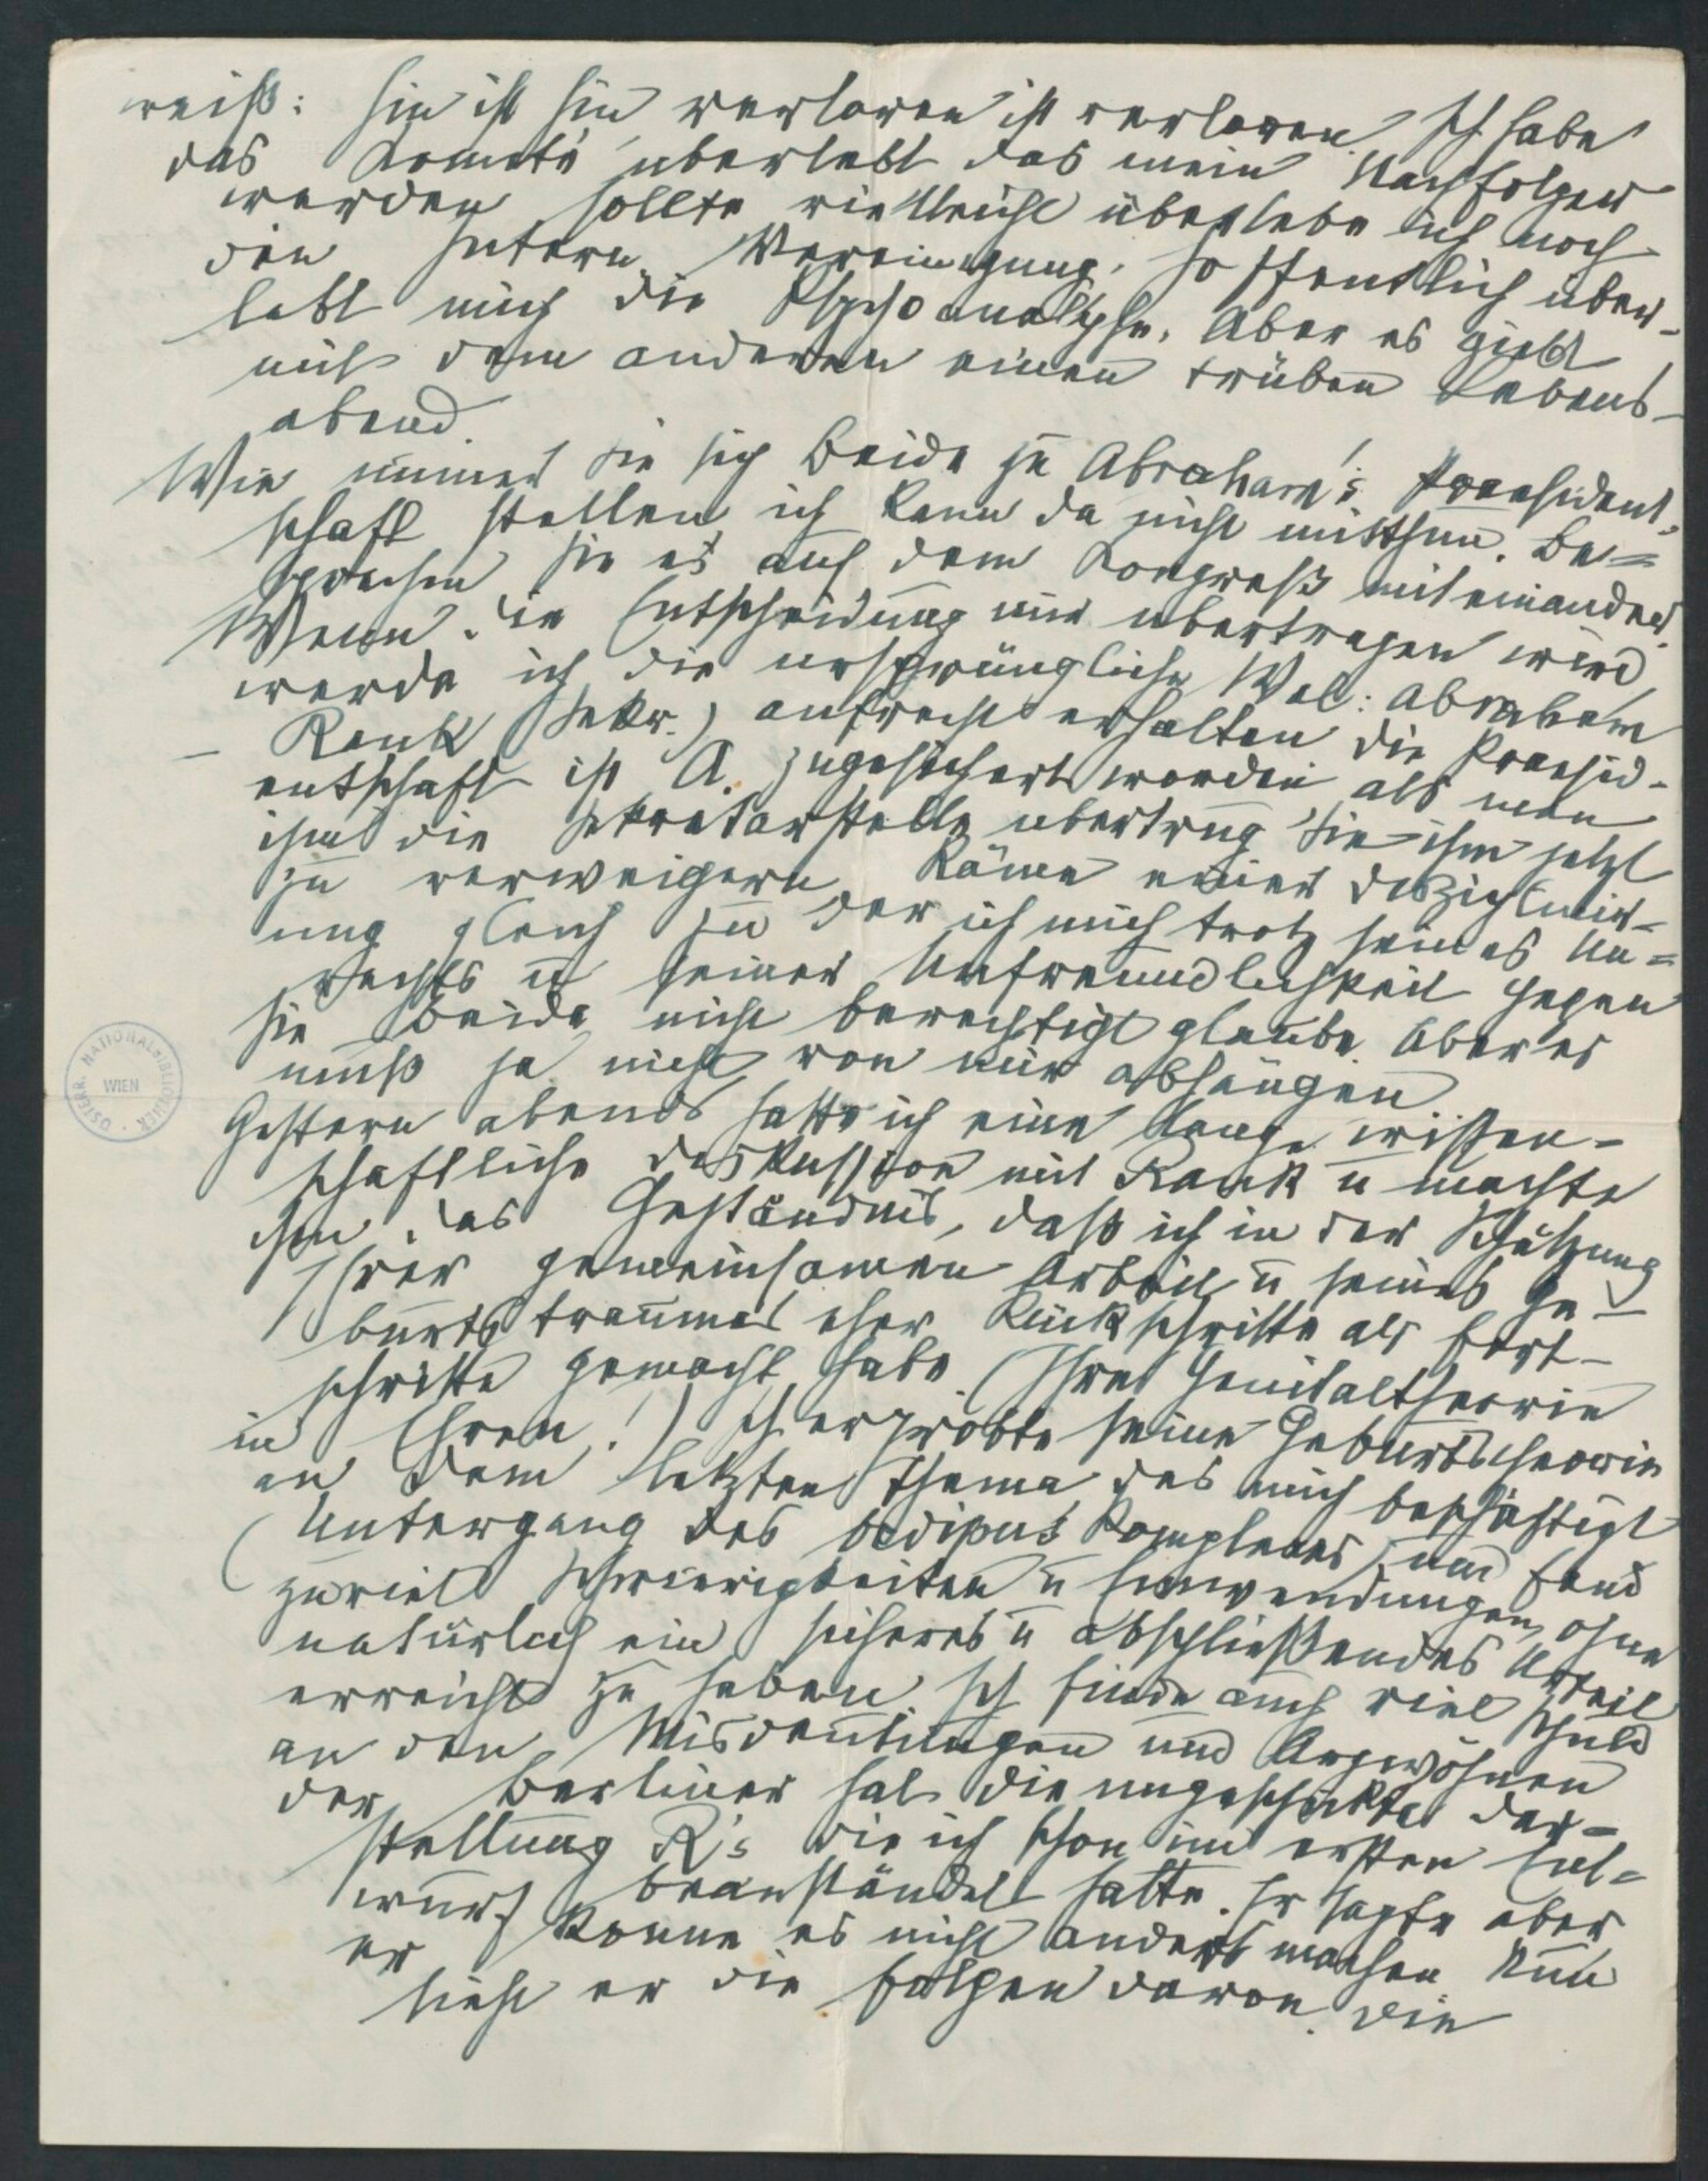 weiß: hin ist hin verloren ist verloren. Ich habe
das Komité überlebt das mein Nachfolger
werden sollte vielleicht überlebe ich noch
die Intern. Vereinigung. Hoffentlich über-
lebt mich die Psychoanalyse. Aber es giebt
mit dem anderen einen trüben Lebens-
abend.
Wie immer Sie sich beide zu Abraham's Praesident-
schaft stellen ich kann da nicht mitthun. Be-
sprechen Sie es auf dem Kongreß miteinander.
Wenn die Entscheidung mir übertragen wird
werde ich die ursprüngliche Wal: Abraham
– Rank (Sekr.) aufrecht erhalten die Praesid-
entschaft ist A. zugesichert worden als man
ihm die Sekretärstelle übertrug Sie ihm jetzt
zu verweigern, käme einer
ung gleich zu der ich mich trotz seines Un-
rechts u seiner Unfreundlichkeit gegen
Sie beide nicht berechtigt glaube. Aber es
muß ja nicht von mir abhängen
Gestern abends hatte ich eine lange wissen-
schaftliche Diskussion mit Rank u machte
ihm das Geständnis, daß ich in der Schätzung
Ihrer gemeinsamen Arbeit u seines Ge-
burtstraumas eher Rückschritte als Fort-
schritte gemacht habe. (Ihre Genitaltheorie
in Ehren!) Ich erprobte seine Geburtstheorie
an dem letzten Thema das mich beschäftigt
(Untergang des Oedipus Komplexes) und fand
zuviel Schwierigkeiten u Einwendungen, ohne
natürlich ein sicheres u abschließendes Urteil
erreicht zu haben. Ich finde auch viel Schuld
an den Misdeutungen und Argwöhnen
der Berliner hat die ungeschickte Dar-
stellung R's die ich schon im ersten Ent-
wurf beanständet hatte. Er sagte aber
er könne es nicht anders machen Nun
sieht er die Folgen davon. Die
ÖSTERR. NATIONALBIBLIOTHEK
WIEN